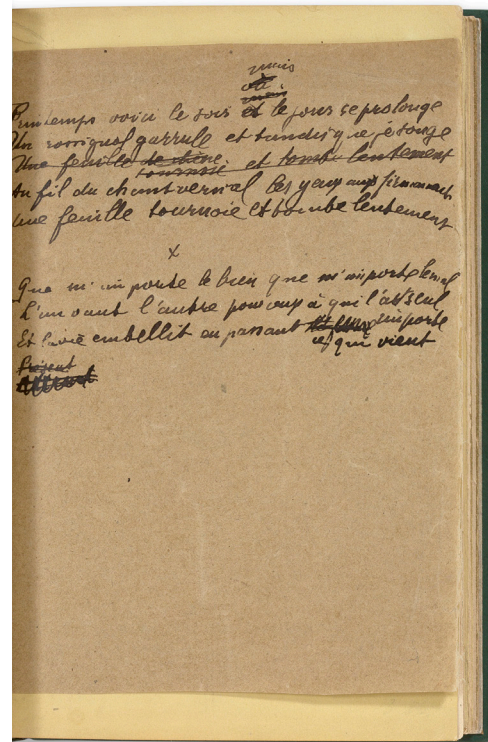 mais
où
mais
Printemps voici le soir et le jour se prolonge
Un rossignol garrule et tandis que je songe
Une feuille de chêne et tombe lentement
tournoie
Au fil du chant vernal les yeux aux firmaments
Une feuille tournoie et tombe lentement
x
Que m'importe le bien que m'importe le mal
L'un vaut l'autre pour
Et la vie embellit en passant importe
qui vient